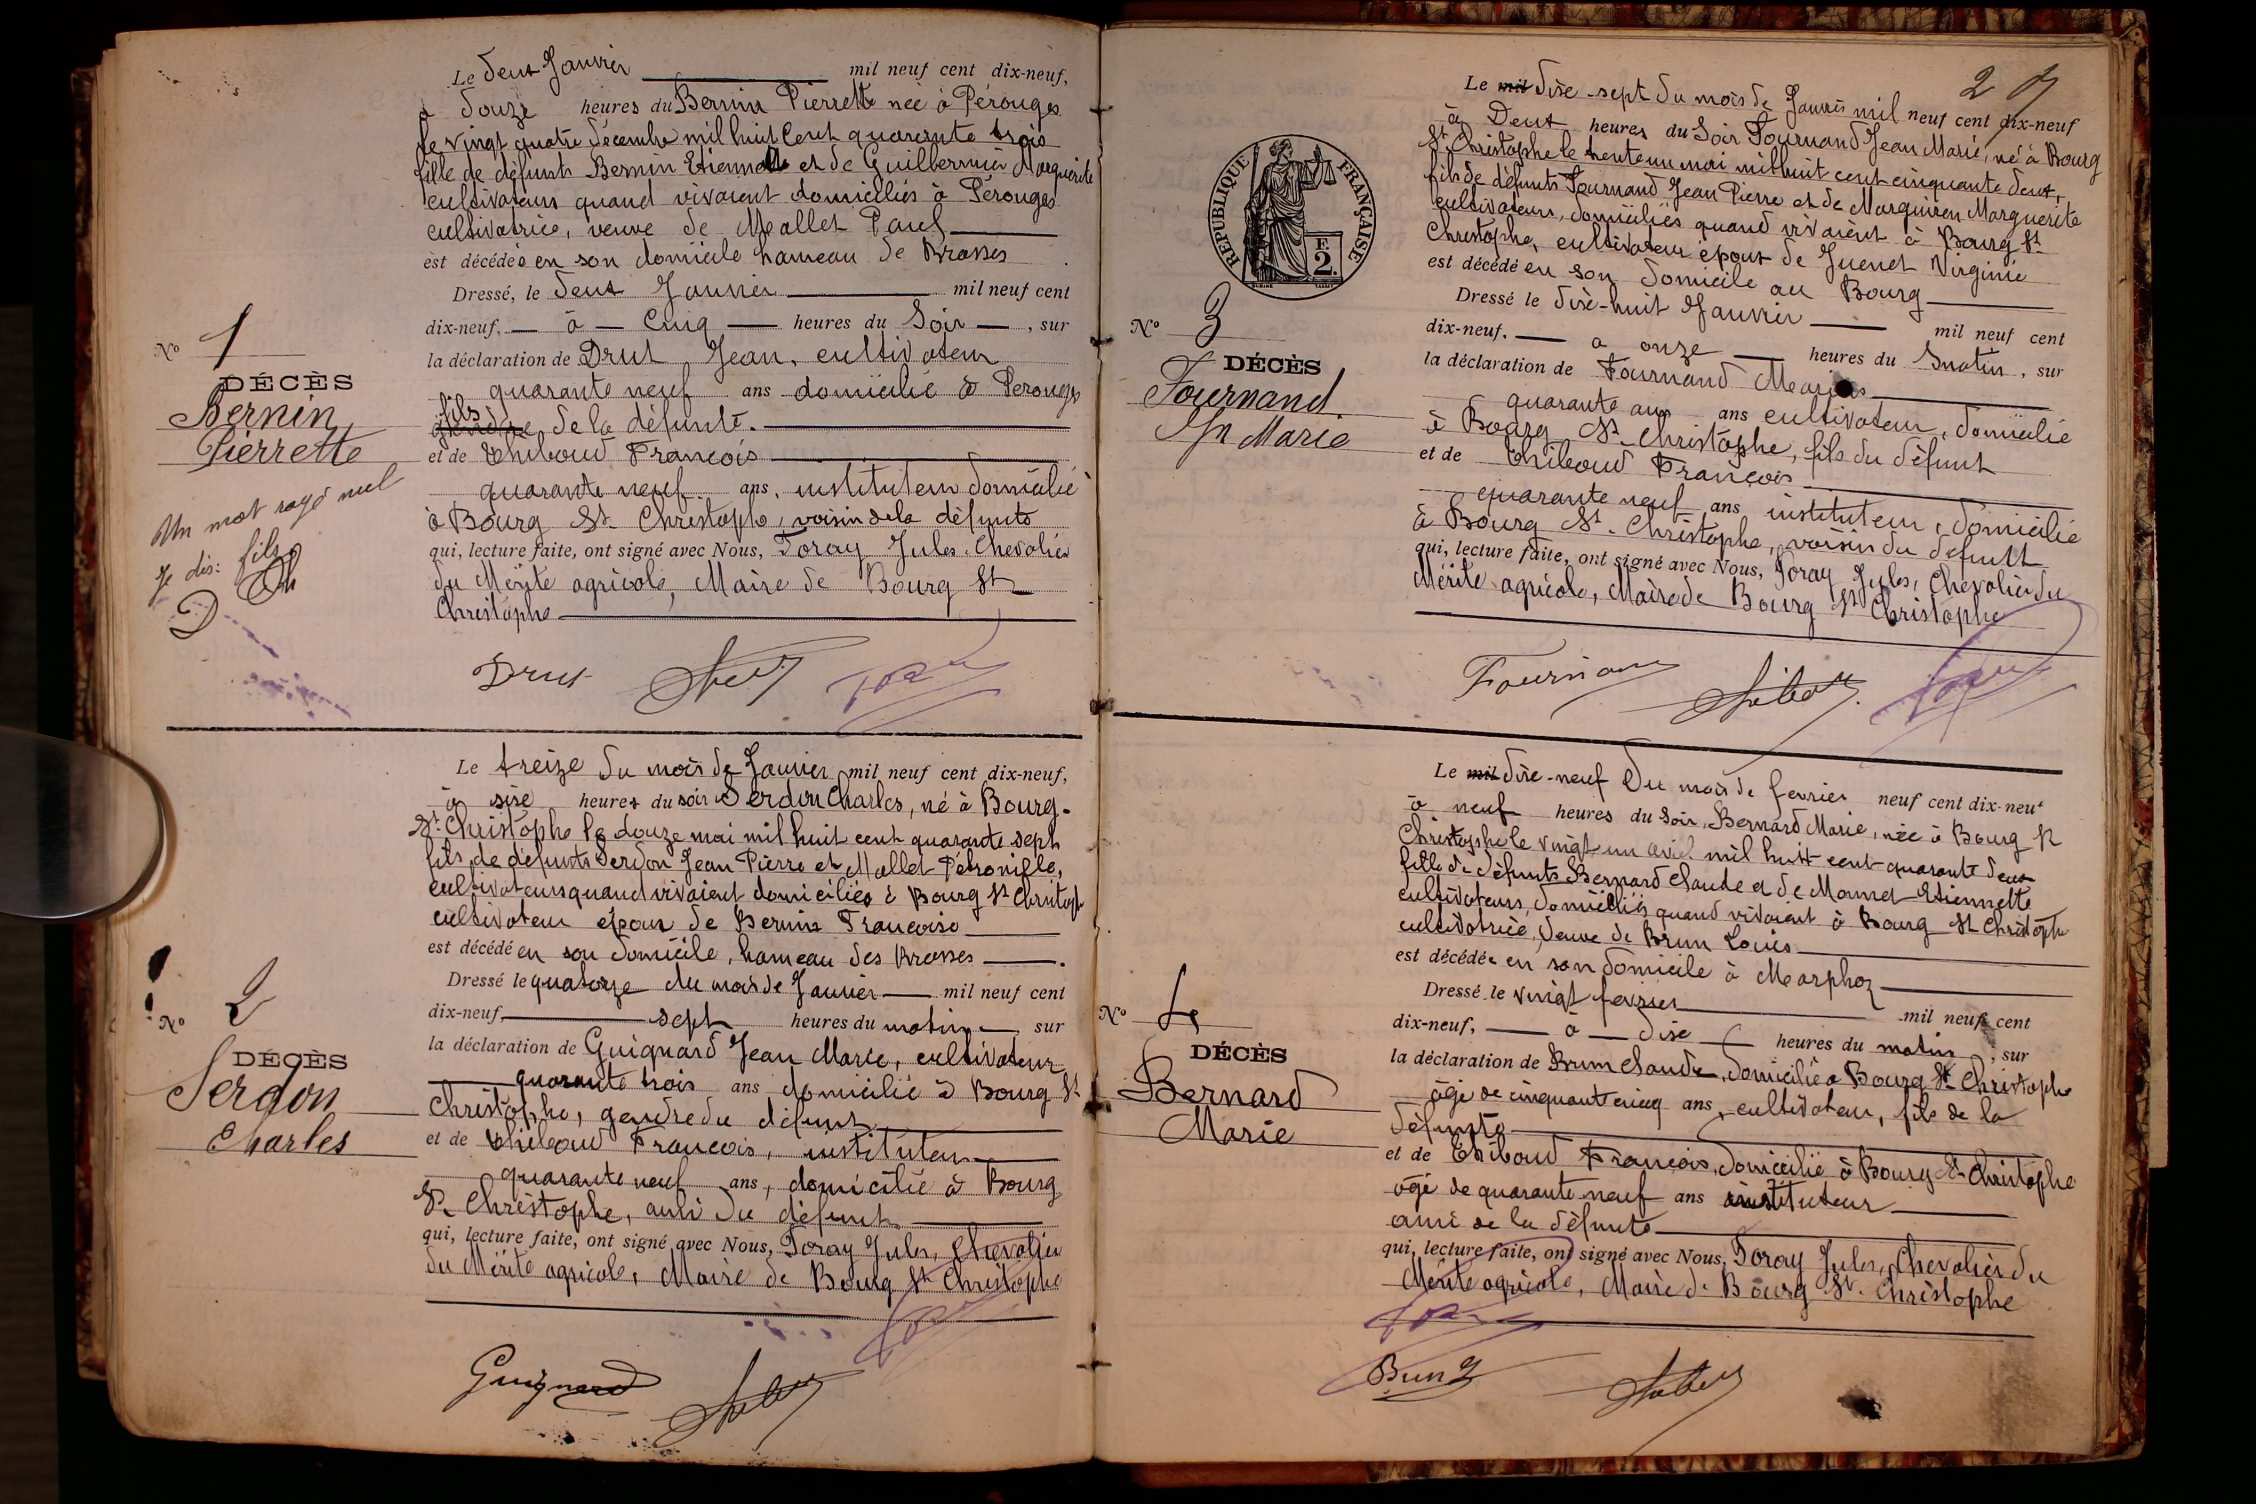 Le deux Janvier mil neuf cent dix-neuf,
à douze heures du Bernin Pierrette née à Pérouges
le vingt quatre décembre mil huit cent quarante trois
fille de défunts Bernin Etienne et de Guillermin Marguerite
cultivateurs quand vivaient domiciliés à Pérouges
cultivatrice, veuve de Mallet Paul
est décédée en son domicile hameau de Brosses
Dressé, le deux Janvier mil neuf cent
dix-neuf, à Cinq heures du Soir, sur
la déclaration de Drut Jean, cultivateur
quarante neuf ans domicilié à Perouges
fils de la défunte.
et de Thiboud François
quarante neuf ans, instituteur domicilié
à Bourg St Christophe, voisin de la défunte
qui, lecture faite, ont signé avec Nous, Toray Jules, Chevalier
du Mérite agricole, Maire de Bourg St
Christophe
No 1
DÉCÈS
Bernin
Pierrette
Un mot rayé nul
Je dis: fils
D
Drut
Le treize du mois de Janvier mil neuf cent dix-neuf,
à sise heures du soir Serdon Charles, né à Bourg-
St Christophe le douze mai mil huit cent quarante sept
fils de défunts Serdon Jean Pierre et Mallet Pétronille,
cultivateurs quand vivaient domiciliés à Bourg St Christophe
cultivateur époux de Bernin Françoise
est décédé en son domicile, hameau des Brosses.
Dressé le quatorze du mois de Janvier mil neuf cent
dix-neuf, sept heures du matin, sur
la déclaration de Guignard Jean Marie, cultivateur
quarante trois ans domicilié à Bourg St
Christophe, gendre du défunt
et de Thiboud François, instituteur
quarante neuf ans, domicilié à Bourg
St Christophe, ami du défunt
qui, lecture faite, ont signé avec Nous, Toray Jules, Chevalier
du Mérite agricole, Maire de Bourg St Christophe
No 2
DÉCÈS
Serdon
Charles
Guignard
2
Le mil dixe-sept du mois de Janvier mil neuf cent dix-neuf
à Deux heures du Soir Fournand Jean Marie, né à Bourg
St Christophe le trente un mai mil huit cent cinquante deux,
fils de défunts Fournand Jean Pierre et de Marguiron Marguerite
cultivateurs, domiciliés quand vivaient à Bourg St
Christophe, cultivateur époux de Juenet Virginie
est décédé en son domicile au Bourg
Dressé le dixe-huit Janvier mil neuf cent
dix-neuf, à onze heures du matin, sur
la déclaration de Fournand Marius
quarante ans ans cultivateur, domicilié
à Bourg St Christophe, fils du défunt
et de Thiboud François
quarante neuf ans instituteur, domicilié
à Bourg St. Christophe, voisin du défunt
qui, lecture faite, ont signé avec Nous, Toray Jules, Chevalier du
Mérite agricole, Maire de Bourg St Christophe
RÉPUBLIQUE FRANÇAISE
F.
2.
No 3
DÉCÈS
Fournand
Jn Marie
Fournand
Thiboud
Le mil dixe-neuf Du mois de fevrier neuf cent dix-neuf
à neuf heures du Soir, Bernard Marie, née à Bourg St
Christophe le vingt un avril mil huit cent quarante deux
fille de défunts Bernard Claude et de Monnet Etiennette
cultivateurs, domiciliés quand vivaient à Bourg St Christophe
cultivatrice, veuve de Brun Louis
est décédée en son domicile à Marphoz
Dressé, le vingt fevrier mil neuf cent
dix-neuf, à dixe heures du matin, sur
la déclaration de Brun Claude, domicilié à Bourg St Christophe
âgé de cinquante cinq ans, cultivateur, fils de la
défunte
et de Thiboud François, domicilié à Bourg St Christophe
âgé de quarante neuf ans instituteur
ami de la défunte
qui, lecture faite, ont signé avec Nous, Toray Jules, Chevalier du
Mérite agricole, Maire de Bourg St. Christophe
No 4
DÉCÈS
Bernard
Marie
Brun